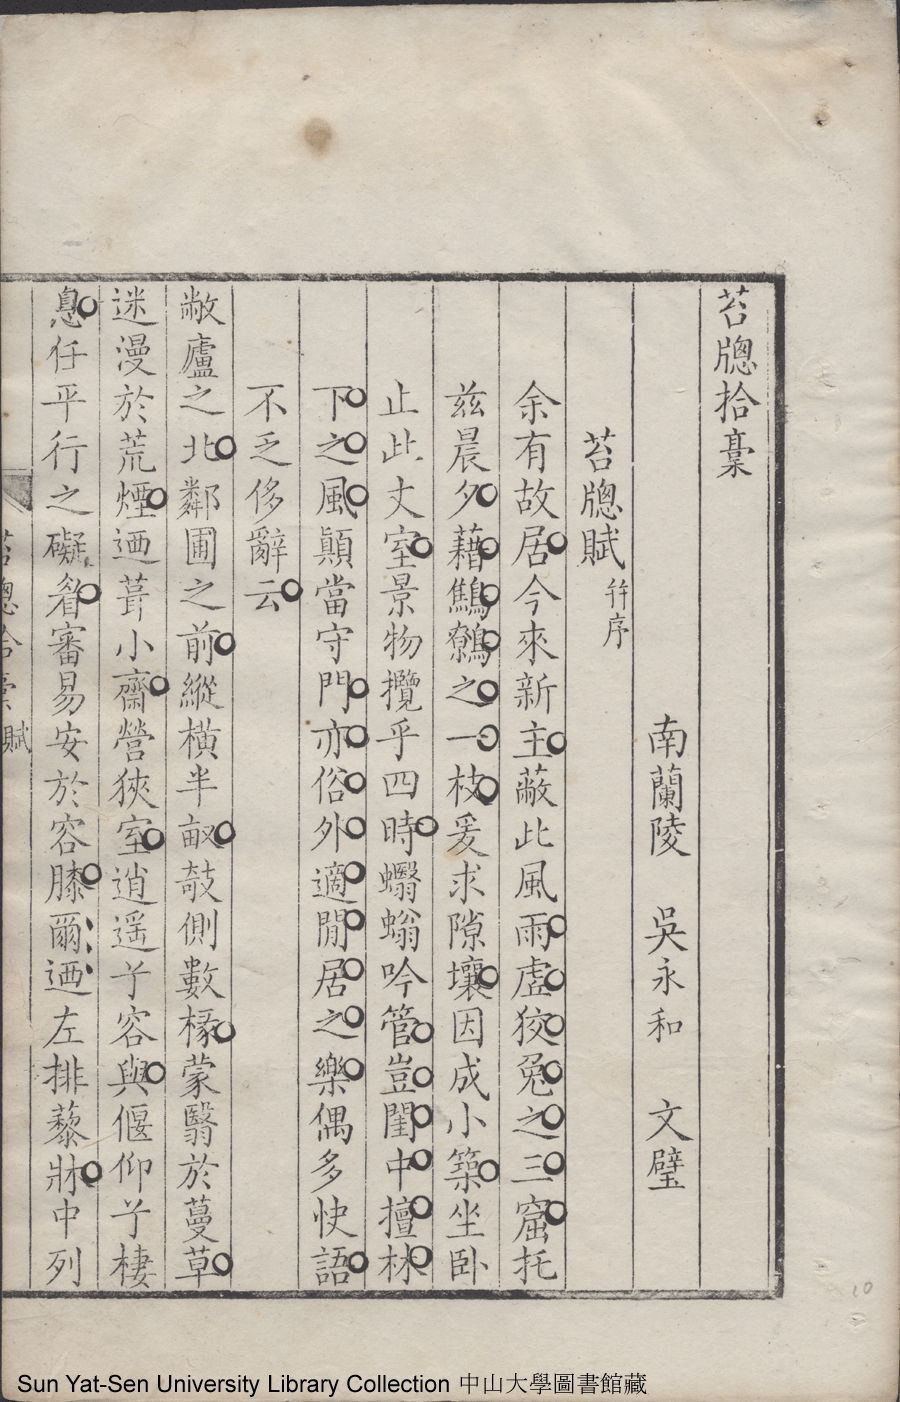 苔牕拾稾
南蘭陵　吳永和　文璧
苔牕賦 并序
余有故居今來新主蔽此風雨虛狡兔之三窟托
兹晨夕藉鷦鷯之一枝爰求隙壤因成小築坐卧
止此丈室景物攬乎四時蠮螉吟管豈閨中擅林
下之風顚當守門亦俗外適閒居之樂偶多快語
不乏侈辭云
敝廬之北鄰圃之前縱橫半畝攲側數椽蒙翳於蔓草
迷漫於荒煙迺葺小齋營狹室逍遥兮容與偃仰兮棲
息任平行之礙眉審易安於容膝爾迺左排藜牀中列
苔牕拾稾 賦
Sun Yat-Sen University Library Collection 中山大學圖書館藏
10